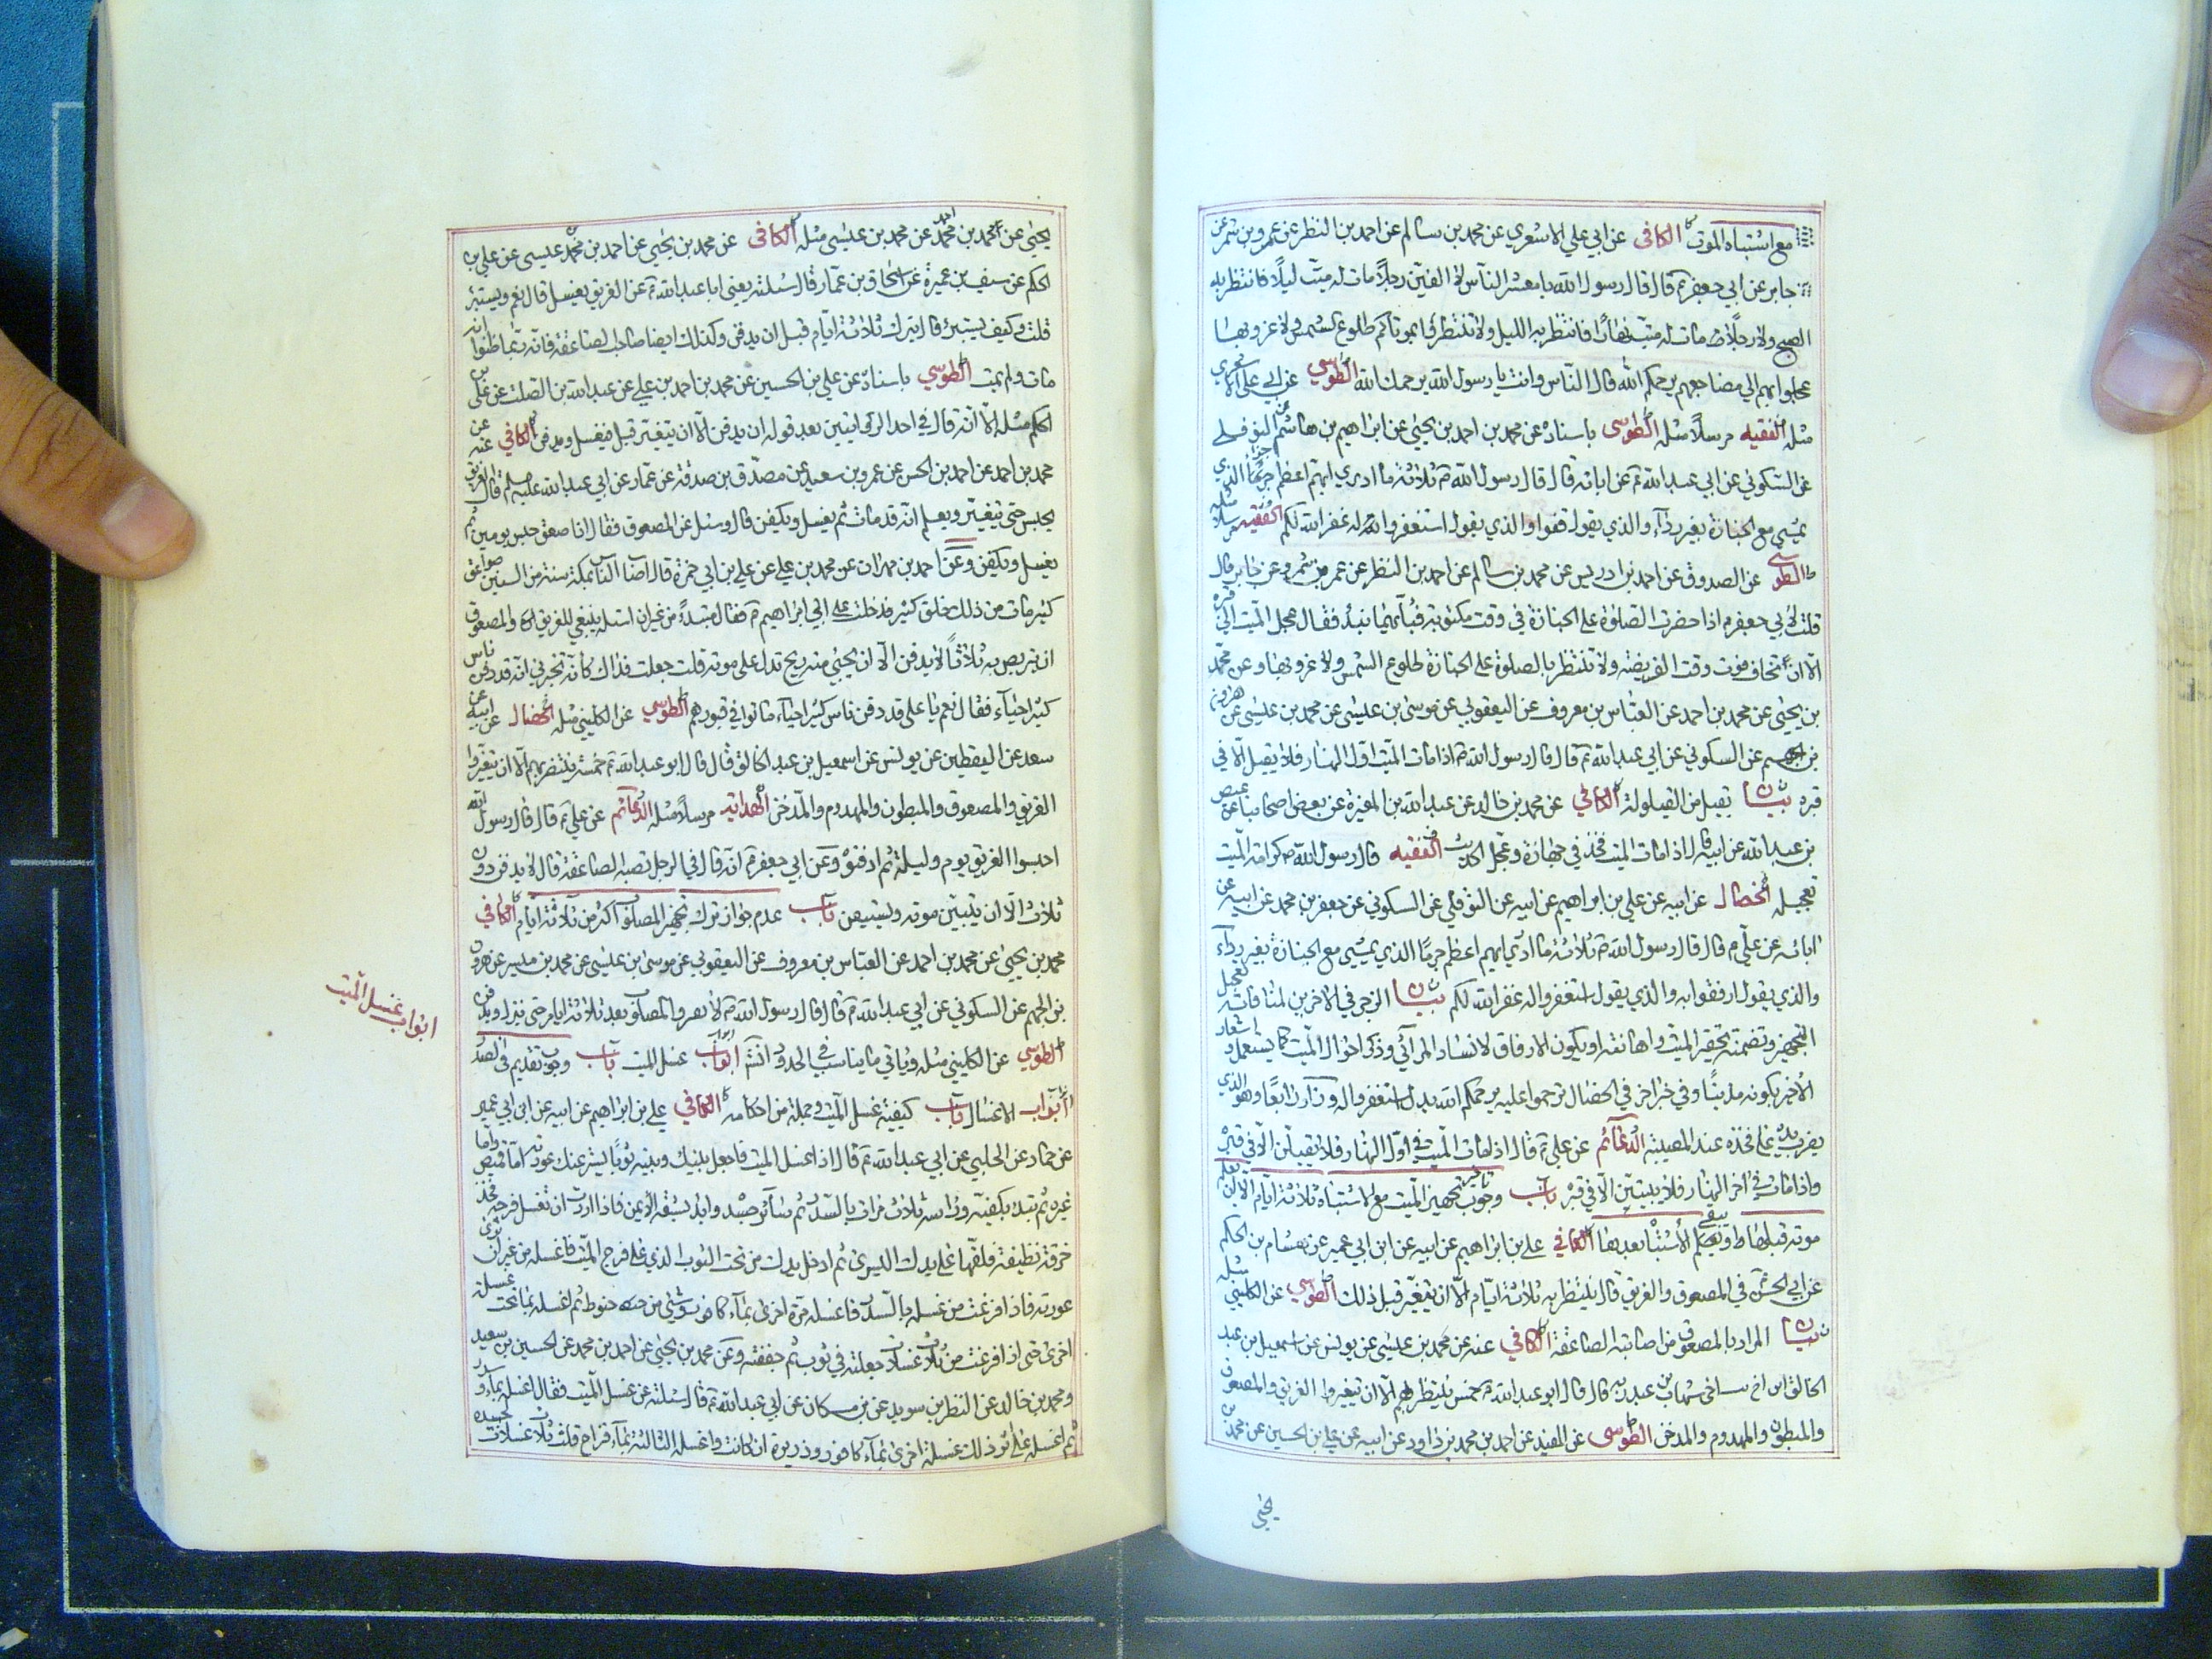 مع اشتباه الموت الكافى عن ابي علي الاشعري عن محمد بن سالم عن احمد بن النظر عن عمرو بن شمر عن
جابر عن ابي جعفر ع قال قال رسول الله يا معشر الناس لا الفين رجلا مات له ميت ليلا فانتظر به
الصبح ولا رجلا مات له ميت نهارا فانتظر به الليل ولا تنتظروا بموتاكم طلوع الشمس ولا غروبها
عجلوا بهم الي مضاجعهم يرحمكم الله قال الناس وانت يا رسول الله يرحمك الله الطوسي عن ابي علي الاشعري
مثله الفقيه مرسلا مثله الطوسى باسناده عن محمد بن احمد بن يحيي عن ابراهيم بن هاشم عن النوفلي
عن السكوني عن ابي عبد الله ع عن ابائه قال قال رسول الله ص ثلاثة ما ادري ايهم اعظم جرما الذي
يمشي مع الجنازة بغير رداء والذي يقول قفوا والذي يقول استغفروا له غفر الله لكم الفقيه مرسلا مثله
الطوسى عن الصدوق عن احمد بن ادريس عن محمد بن سالم عن احمد بن النظر عن عمرو بن شمر وعن جابر قال
قلت لابي جعفر ع اذا حضرت الصلوة على الجنازة في وقت مكتوبة فبايهما نبدأ فقال عجل الميت الي قبره
الا ان تخاف فوت وقت الفريضه ولا تنتظر بالصلوة على الجنازة طلوع الشمس ولا غروبها وعن محمد
بن يحيى عن محمد بن احمد عن العباس بن معروف عن اليعقوبي عن موسى بن عيسى عن محمد بن عيسى عن هرون
بن الجهم عن السكوني عن ابي عبد الله ع قال قال رسول الله ص اذا مات الميت اول النهار فلا يقيل الا في
قبره بيان يقيل من القيلولة الكافي عن محمد بن خالد عن عبد الله بن المغيرة عن بعض اصحابنا عن عيص
بن عبد الله عن ابيه قال اذا مات الميت فخذ في جهازه وعجل الحديث الفقيه قال رسول الله ص كرامة الميت
تعجيله الخصال عن ابيه عن علي بن ابراهيم عن ابيه عن النوفلي عن السكوني عن جعفر بن محمد عن ابيه عن
ابائه عن علي ع قال قال رسول الله ص ثلاثة ما ادري ايهم اعظم جرما الذي يمشي مع الجنازة بغير رداء
والذي يقول ارفقوا به والذي يقول استغفروا له غفر الله لكم بيان الزجر في الاخرين لمنافاته تعجيل
التجهيز وتضمنه تحقير الميت واهانته او يكون الارفاق لانشاد المراثي وذكر احوال الميت كما يستعمل واشعار
الاخير بكونه مذنبا وفي خبر اخر في الخصال ترحموا عليه يرحمكم الله بدل استغفروا له وزاد رابعا وهو الذي
يضرب يده علي فخذه عند المصيبة الدعائم عن علي ع قال اذا مات الميت في اول النهار فلا يقيلن الا في قبره
واذا مات في اخر النهار فلا يبيتن الا في قبره باب وجوب تاخير تجهيز الميت مع الاشتباه ثلاثة ايام الا ان يعلم
موته قبلها او يبقي الاشتباه بعدها الكافي علي بن ابراهيم عن ابيه عن ابن ابي عمير عن هشام بن الحكم
عن ابي الحسن ع في المصعوق والغريق قال ينتظر به ثلاثة ايام الا ان يتغير قبل ذلك الطوسي عن الكليني مثله
بيان المراد بالمصعوق من اصابته الصاعقة الكافي عنه عن محمد بن عيسى عن يونس عن اسمعيل بن عبد
الخالق ابن اخ شهاب بن عبد ربه قال قال ابو عبد الله ع خمس ينتظر بهم الا ان يتغيروا الغريق والمصعوق
والمبطون والمهدوم والمدخن الطوسى عن المفيد عن احمد بن محمد بن داود عن ابيه عن علي بن الحسين عن محمد بن
يحيى
يحيى عن احمد بن محمد عن محمد بن عيسى مثله الكافى عن محمد بن يحيى عن احمد بن محمد عيسى عن علي بن
الحكم عن سيف بن عميرة عن اسحاق بن عمار قال سئلته يعني ابا عبد الله ع عن الغريق يغسل قال نعم ويستبرئ
قلت وكيف يستبرئ قال يترك ثلاثة ايام قبل ان يدفن وكذلك ايضا صاحب الصاعقة فانه ربما ظنوا انه
مات ولم يمت الطوسي باسناده عن علي بن الحسين عن محمد بن احمد بن علي عن عبد الله بن الصلت عن علي بن
الحكم مثله الا انه قال في احد الروايتين بعد قوله ان يدفن الا ان يتغير قبل فيغسل ويدفن الكافي عنه عن
محمد بن احمد عن احمد بن الحسن عن عمرو بن سعيد عن مصدق بن صدقة عن عمار عن ابي عبد الله عليه سلم قال الغريق
يحبس حتي يتغير ويعلم انه قد مات ثم يغسل ويكفن قال وسئل عن المصعوق فقال اذا صعق حبس يومين ثم
يغسل ويكفن وعن احمد بن مهران عن محمد بن علي عن علي بن ابي حمزة قال اصاب الناس بمكة سنة من السنين صواعق
كثير مات من ذلك خلق كثير فدخلت على ابي ابراهيم ع فقال مبتدءً من غير ان اسئله ينبغي للغريق والمصعوق
ان يتربص به ثلاثاً لا يدفن الا ان يجيئ منه ريح تدل على موته قلت جعلت فداك كانه تخبرني انه قد دفن ناس
كثير احياء فقال نعم يا علي قد دفن ناس كثير احياء ماتوا في قبورهم الطوسي عن الكليني مثله الخصال عن ابيه عن
سعد عن اليقطين عن يونس عن اسمعيل بن عبد الخالق قال قال ابو عبد الله ع خمسة ينتظر بهم الا ان يتغيروا
الغريق والمصعوق والمبطون والمهدوم والمدخن الهداية مرسلاً مثله الدعائم عن علي ع قال قال رسول الله
احبسوا الغريق يوم وليلة ثم ادفنوه وعن ابي جعفر ع انه قال في الرجل تصيبه الصاعقة قال لا يدفن دون
ثلاث الا ان يتبين موته ويستيقن باب عدم جواز ترك تجهيز المصلوب اكثر من ثلاثة ايام الكافي
محمد بن يحيي عن محمد بن احمد عن العباس بن معروف عن اليعقوبي عن موسى بن عيسى عن محمد بن ميسر عن هرون
بن الجهم عن السكوني عن ابي عبد الله ع قال قال رسول الله ص لا تقروا المصلوب بعد ثلاثة ايام حتى ينزل ويدفن
الطوسي عن الكليني مثله وياتي ما يناسب في الحدود انشم ابواب غسل الميت باب وجوب تقديم في الصدر
ابواب الاغسال باب كيفية غسل الميت وجملة من احكامه الكافي علي بن ابراهيم عن ابيه عن ابن ابي عمير
عن حماد عن الحلبي عن ابي عبد الله ع قال اذا غسل الميت فاجعل بينك وبينه ثوبا يستر عنك عورته اما قميص واما
غيره ثم تبدء بكفيه وراسه ثلاث مرات بالسدر ثم سائر جسده وابدا بشقه الايمن فاذا اردت ان تغسل فرجه فخذ
خرقة نظيفة فلفها علي يدك اليسرى ثم ادخل يدك من تحت الثوب الذي على فرج الميت فاغسله من غير ان تري
عورته فاذا فرغت من غسله بالسدر فاغسله مرة اخرى بماء كافور وشئ من حنوط ثم اغسله بماء بحت غسلة
اخرى حتى اذا فرغت من ثلاث غسلات جعلته في ثوب ثم جففته وعن محمد بن يحيى عن احمد بن محمد عن الحسين بن سعيد
ومحمد بن خالد عن النظر بن سويد عن بن مسكان عن ابي عبد الله ع قال سئلته عن غسل الميت فقال اغسله بماء وسدر
ثم اغسله على اثر ذلك غسلة اخرى بماء كافور وذريرة ان كانت واغسله الثالثة بماء قراح قلت ثلاث غسلات لجسده
ابواب غسل الميت